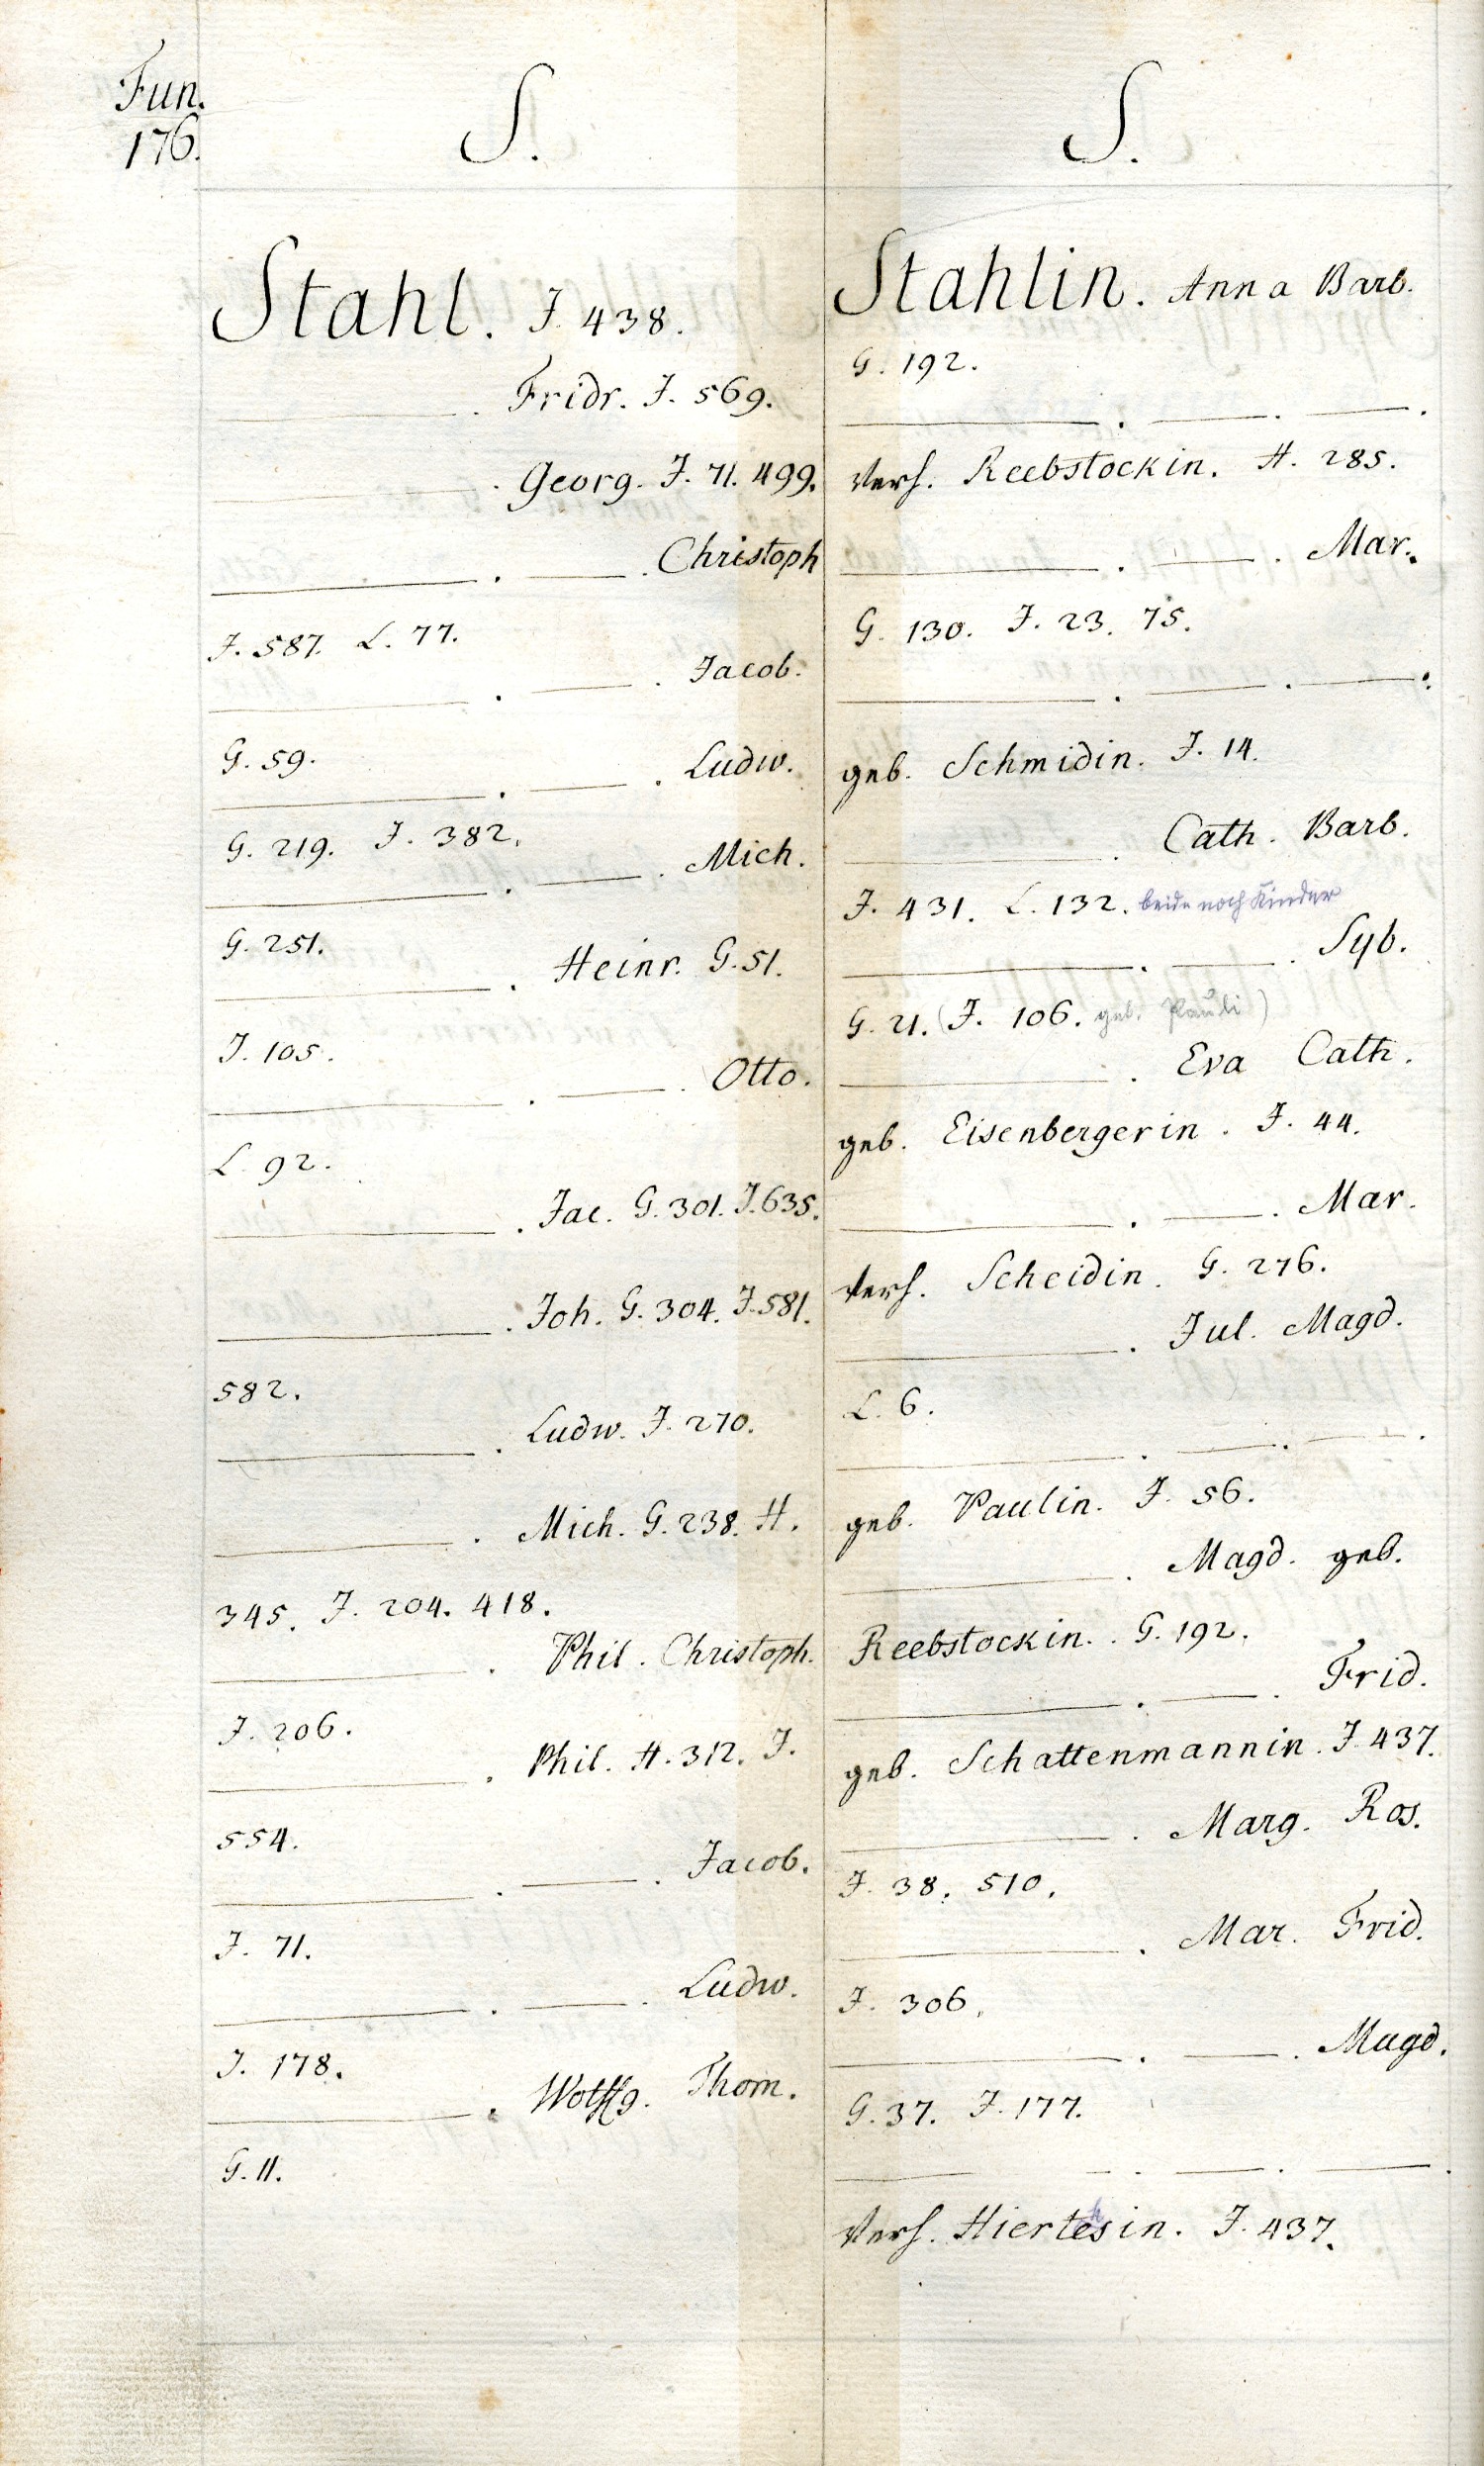 Fun.
176.
S.
Stahl. J. 438.
———. Fridr. J. 569.
———. Georg. J. 71. 499.
———. ———. Christoph
J. 587. L. 77.
———. ———. Jacob.
G. 59.
———. ———. Ludw.
G. 219. J. 382.
———. ———. Mich.
G. 251.
———. Heinr. G. 51.
J. 105.
———. ———. Otto.
L. 92.
———. Jac. G. 301. J. 635.
———. Joh. G. 304. J. 581.
582.
———. Ludw. J. 270.
———. Mich. G. 238. H.
345. J. 204. 418.
———. Phil. Christoph.
J. 206.
———. Phil. H. 312. J.
554.
———. ———. Jacob.
J. 71.
———. ———. Ludw.
J. 178.
———. Wolffg. Thom.
G. 11.
S.
Stahlin. Anna Barb.
G. 192.
———. ———. ———.
verh. Reebstockin. H. 285.
———. ———. Mar.
G. 130. J. 23. 75.
———. ———. ———.
geb. Schmidin. J. 14.
———. Cath. Barb.
J. 431. L. 132. beide noch Kinder
———. ———. Syb.
G. 21. (J. 106. geb. Pauli)
———. Eva Cath.
geb. Eisenbergerin. J. 44.
———. ———. Mar.
verh. Scheidin. G. 276.
———. Jul. Magd.
L. 6.
———. ———. ———.
geb. Paulin. J. 56.
———. Magd. geb.
Reebstockin. G. 192.
———. ———. Frid.
geb. Schattenmannin. J. 437.
———. Marg. Ros.
J. 38. 510.
———. Mar. Frid.
J. 306.
———. ———. Magd.
G. 37. J. 177.
———. ———. ———.
verh. Hiertesin. J. 437.